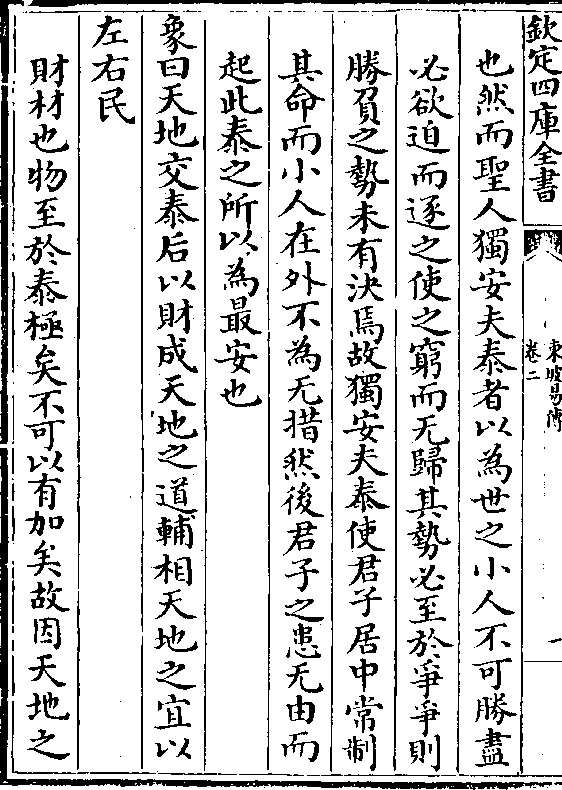 欽定四庫全書
東坡易傳
卷二
一
也然而聖人獨安夫泰者以為世之小人不可勝盡
必欲迫而逐之使之窮而无歸其勢必至於爭爭則
勝負之勢未有決焉故獨安夫泰使君子居中常制
其命而小人在外不為无措然後君子之患无由而
起此泰之所以為最安也
象曰天地交泰后以財成天地之道輔相天地之宜以
左右民
財材也物至於泰極矣不可以有加矣故因天地之